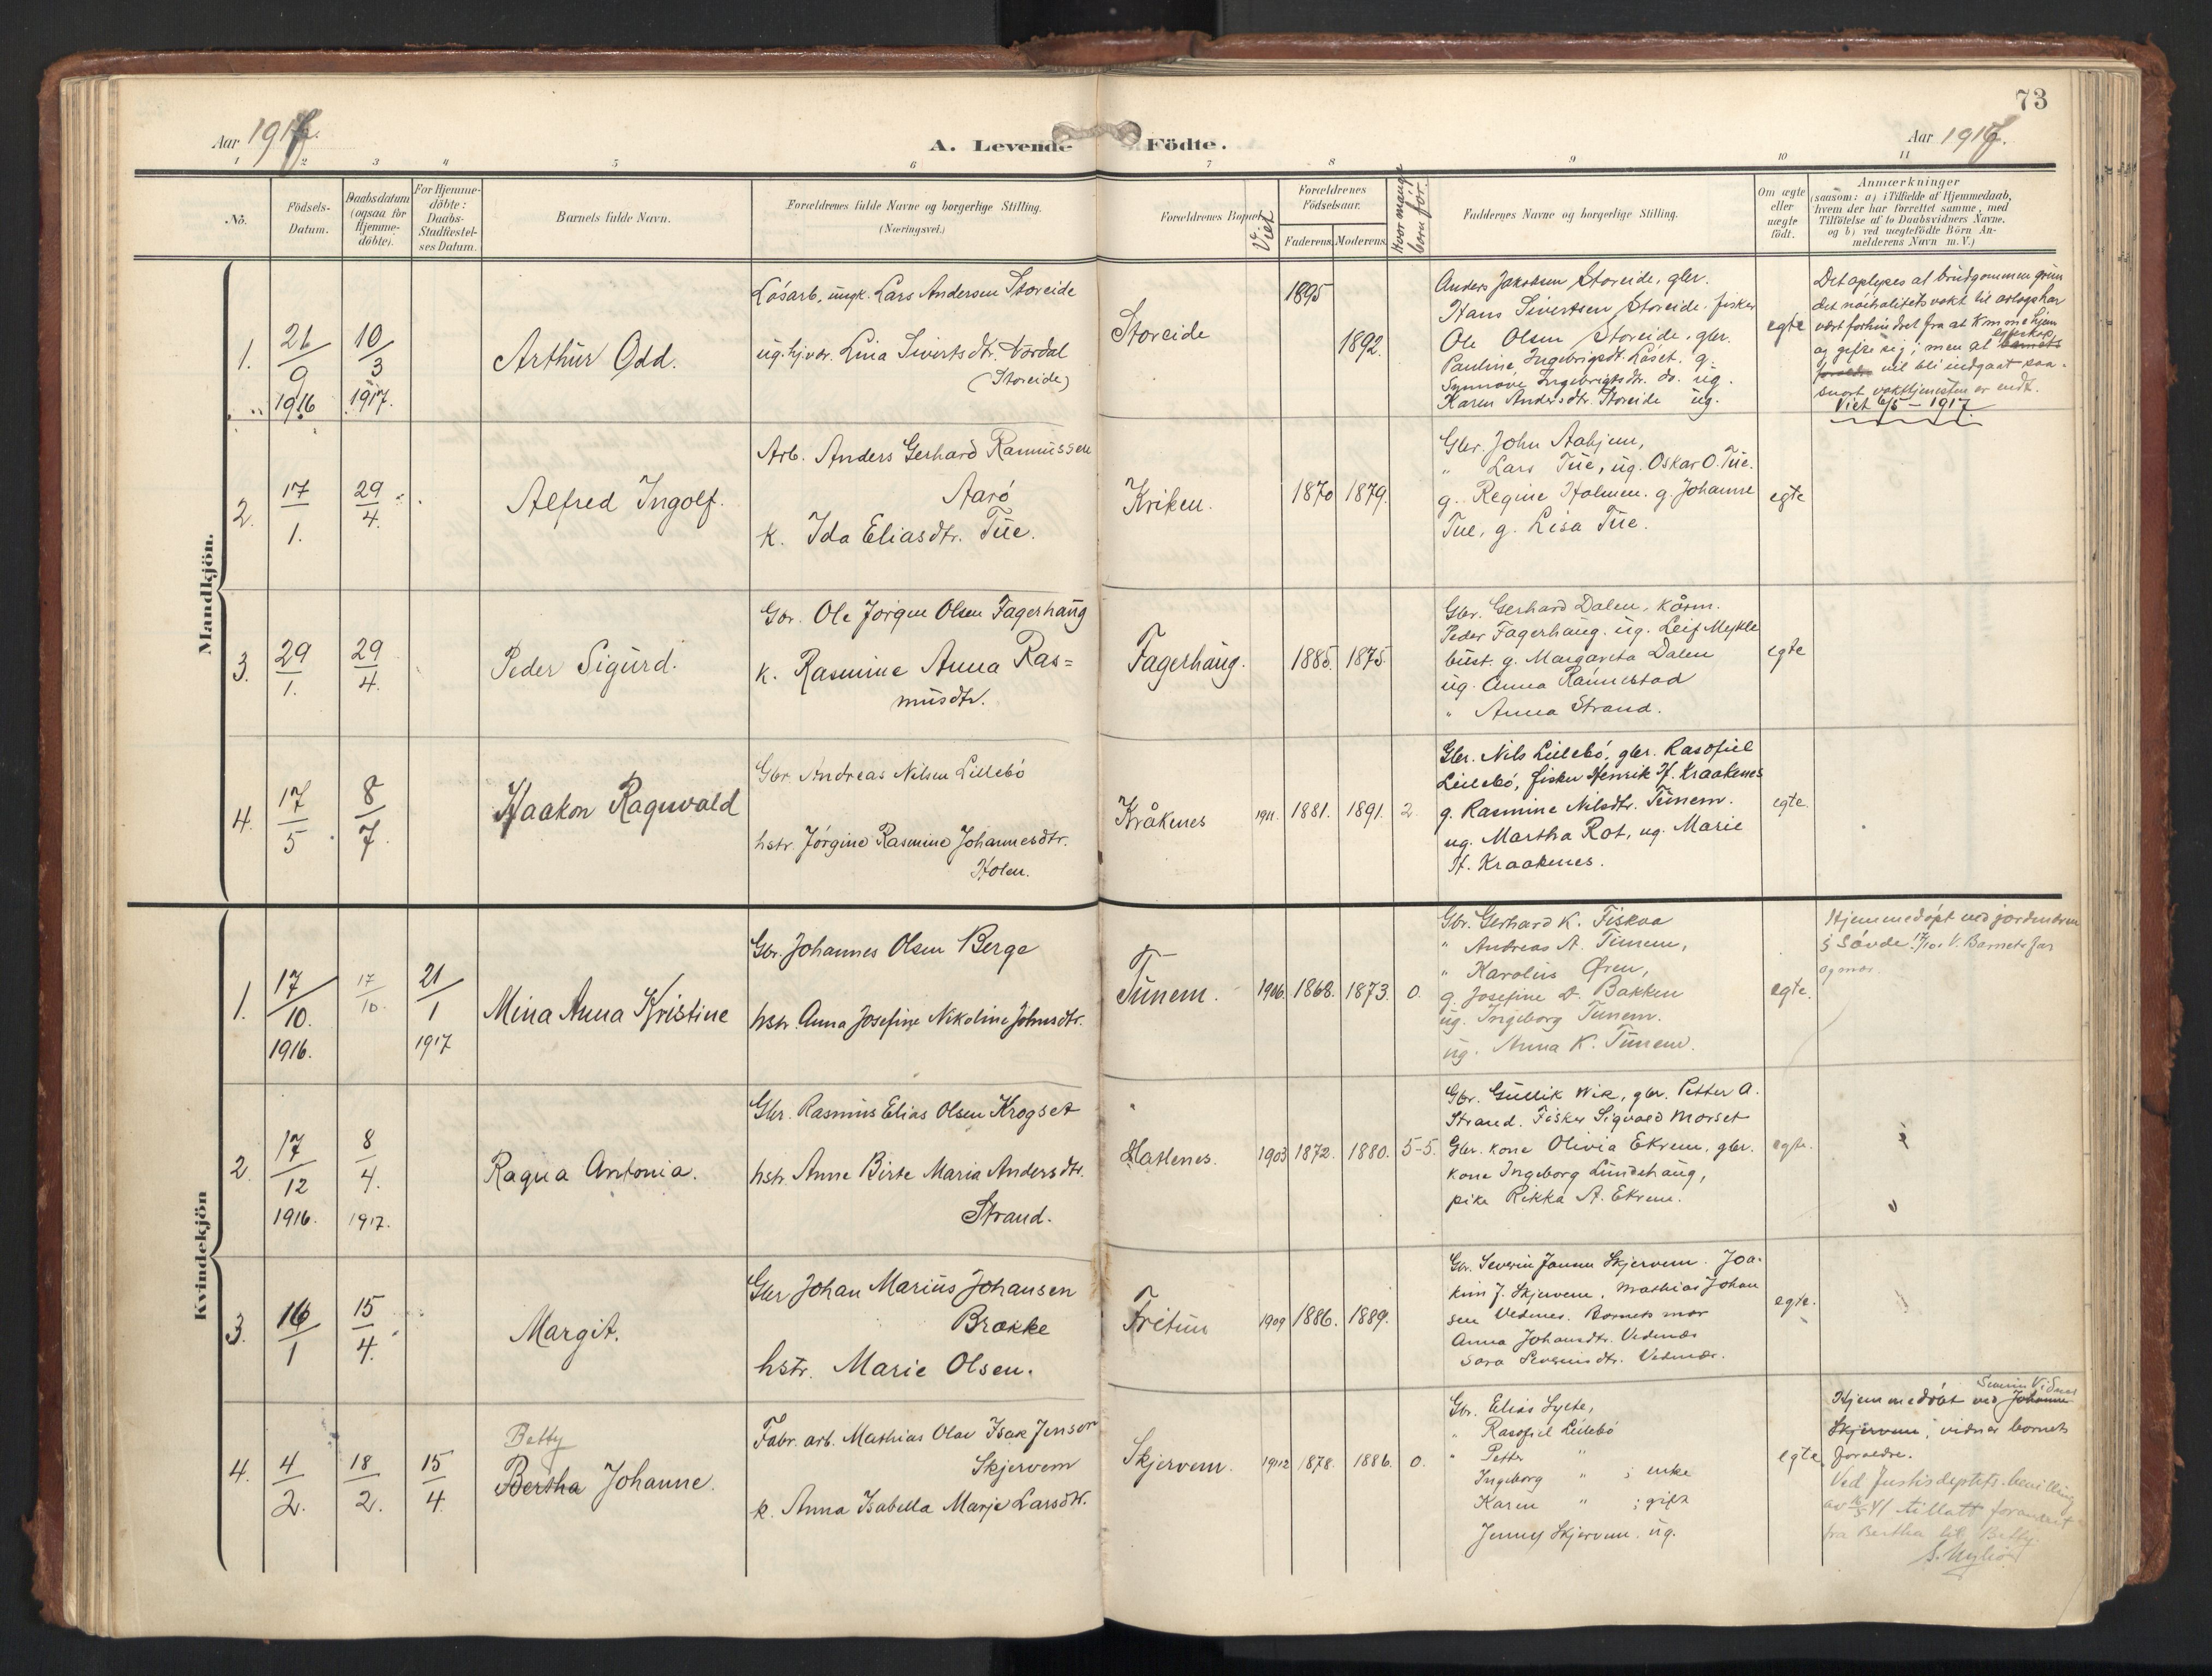 73
Aar 1917.
A. Levende Födte.
Aar 1917.
1 2 3 4 5 6 7 8 9 10 11
No.
Födsels-
Datum.
Daabsdatum
(ogsaa for
Hjemme-
döbte).
For Hjemme-
döbte:
Daabs-
Stadfæstel-
ses Datum.
Barnets fulde Navn.
Forældrenes fulde Navne og borgerlige Stilling.
(Næringsvei.)
Forældrenes Bopæl.
Viet
Forældrenes
Födselsaar.
Faderens. Moderens.
Hvor mange
born før.
Faddernes Navne og borgerlige Stilling.
Om ægte
eller
uægte
födt.
Anmærkninger
(saasom: a) i Tilfælde af Hjemmedaab,
hvem der har forrettet samme, med
Tilföielse af to Daabsvidners Navne,
og b) ved uægtefödte Börn An-
melderens Navn m. V.)
Mandkjön.
1.
26/9 1916
10/3 1917.
Arthur Odd.
Løsarb. ungk. Lars Andersen Storeide
ug. hj.vær. Lina Sivertsdtr. Nordal
(Storeide)
Storeide
1895
1892.
Anders Jakobsen Storeide, gbr.
Hans Sivertsen Storeide. fisker
Ole Olsen Storeide, gbr.
Pauline Ingebrigtdt. Løset. g.
Synnøve Ingebrigtsdtr. do. ug.
Karen Andersdtr. Storeide ug.
egte
Det oplyses at brudgommen grun
det nøitralitetsvakt til orlogs har
vært forhindret fra at komme hjem
og gifte sig; men at egteskap barnets
foreldre vil bli indgaat saa-
snart vakttjenesten er endt.
Viet 6/5 - 1917
2.
17/1.
29/4.
Alfred Ingolf.
Arb. Anders Gerhard Rasmussen
Aarø
k. Ida Eliasdtr. Tue.
Kriken.
1870
1879.
Gbr. John Aahjem,
" Lars Tue, ug. Oskar O. Tue.
g. Regine Holmen. g. Johanne
Tue, g. Lisa Tue.
egte
3.
29/1.
29/4.
Peder Sigurd.
Gbr. Ole Jørgen Olsen Fagerhaug
k. Rasmine Anna Ras=
musdtr.
Fagerhaug.
1885.
1875.
Gbr. Gerhard Dalen, kårm.
Peder Fagerhaug. ug. Leif Mykle
bust. g. Margareta Dalen
ug. Anna Rønnestad
" Anna Strand.
egte
4.
17/5
8/7.
Haakon Ragnvald
Gbr. Andreas Nilsen Lillebø
hstr. Jørgine Rasmine Johannesdtr.
Holen.
Kråkenes
1911.
1881.
1891.
2
Gbr. Nils Lillebø, gbr. Rasofiel
Lillebø, fisker Henrik H. Kraakenes
g. Rasmine Nilsdtr. Tunem.
ug. Martha Rot, ug. Marie
H. Kraakenes.
egte.
Kvindekjön
1.
17/10. 1916.
17/10.
21/1 1917
Mina Anna Kristine
Gbr. Johannes Olsen Berge
hstr. Anna Josefine Nikoline Johnsdtr.
Tunem.
1906.
1868.
1873.
0.
Gbr. Gerhard K. Fiskaa
" Andreas A. Tunem,
" Karolus Øren,
g. Josefine D. Bakken
ug. Ingeborg Tunem.
ug. Anna K. Tunem.
egte.
Hjemmedøpt ved jordmoren
i Søvde. 17/10. V. Barnets far
og mor.
2.
17/12 1916.
8/4. 1917.
Ragna Antonia.
Gbr. Rasmus Elias Olsen Krogset
hstr. Anne Birte Maria Andersdtr.
Strand.
Hatlenes.
1903
1872.
1880.
5-5.
Gbr. Gullik Wik, gbr. Petter A.
Strand. Fisker Sigvald Morset
Gbr. kone Olivia Ekrem, gbr.
kone Ingeborg Lundehaug,
pike Rikka A. Ekrem.
egte.
3.
16/1
15/4.
Margit.
Gbr Johan Marius Johansen
Brække
hstr. Marie Olsen.
Fritun
1909
1886.
1889.
Gbr. Severin Jansen Skjervem. Joa-
kim J. Skjervem. Mathias Johan
sen Vedenes. Barnets mor
Anna Johansdtr. Vednes
Sara Severinsdtr. Vednes.
egte.
4.
4/2.
18/2.
15/4.
Betty
Bertha Johanne.
Fabr. arb. Mathias Olav Isak Jensen
Skjervem
k. Anna Isabella Marje Larsdtr.
Skjervem.
1912
1878.
1886.
0.
Gbr. Elias Lyste,
" Rasofiel Lillebø
" Petter "
Ingeborg " ; enke
Karen " ; gift
Jenny Skjervem. ug.
egte
Severin Vidnes
Hjemmedøbt ved Johanne
Skjervem; vidner barnets
foreldre.
Ved Justisdeptets bevilling
av 41 tillatt forandret
fra Bertha til Betty.